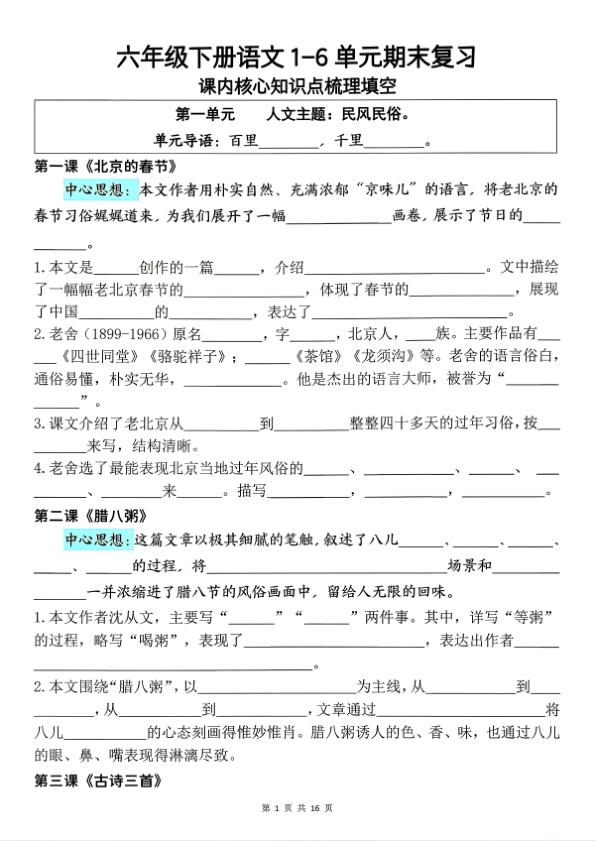 六年级下册语文1-6单元期末复习
课内核心知识点梳理填空
第一单元 人文主题：民风民俗。
单元导语：百里________，千里________。
第一课《北京的春节》
中心思想：本文作者用朴实自然、充满浓郁“京味儿”的语言，将老北京的
春节习俗娓娓道来，为我们展开了一幅______________画卷，展示了节日的_____
_______。
1.本文是______创作的一篇______，介绍________________________。文中描绘
了一幅幅老北京春节的________________，体现了春节的______________，展现
了中国__________的___________，表达了__________________________。
2.老舍（1899-1966）原名________，字______，北京人，____族。主要作品有___
___《四世同堂》《骆驼祥子》；______《茶馆》《龙须沟》等。老舍的语言俗白，
通俗易懂，朴实无华，_____________。他是杰出的语言大师，被誉为“_______
______”。
3.课文介绍了老北京从__________到__________整整四十多天的过年习俗，按___
_______来写，结构清晰。
4.老舍选了最能表现北京当地过年风俗的______、____________、______、 ___
_______、________来______。描写___________，___________，___________。
第二课《腊八粥》
中心思想：这篇文章以极其细腻的笔触，叙述了八儿______、______、______、
_____、______的过程，将________________________________场景和_________
_______一并浓缩进了腊八节的风俗画面中，留给人无限的回味。
1.本文作者沈从文，主要写“______”“______”两件事。其中，详写“等粥”
的过程，略写“喝粥”，表现了____________________，表达出作者______
_____________________________________。
2.本文围绕“腊八粥”，以_____________________为主线，从____________到____
________，从___________到__________，文章通过______________________将
八儿___________的心态刻画得惟妙惟肖。腊八粥诱人的色、香、味，也通过八儿
的眼、鼻、嘴表现得淋漓尽致。
第三课《古诗三首》
第 1 页 共 16 页